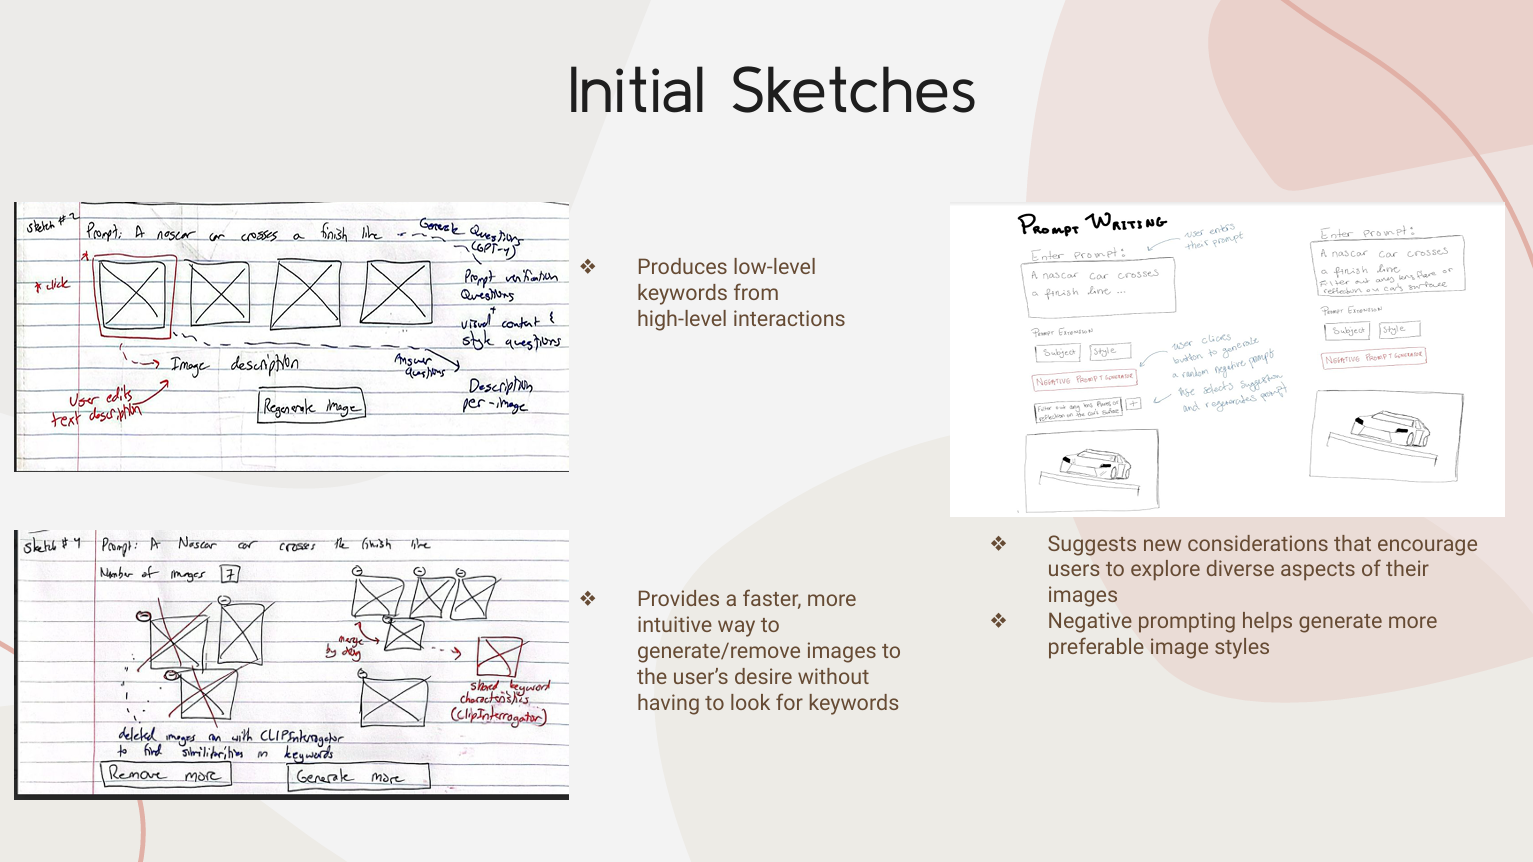 Initial Sketches
Sketch #2
Prompt: A nascar car crosses a finish line
Generate Questions
(GPT-4)
* click
Prompt verification
Questions
+
visual content &
style questions
Answer
questions
Image description
User edits
text description
Regenerate image
Description
per-image
❖ Produces low-level
keywords from
high-level interactions
Sketch #4
Prompt: A Nascar car crosses the finish line
Number of images 7
merge
by drag
shared keyword
characteristics
(ClipInterrogator)
deleted images run with CLIPInterrogator
to find similarities in keywords
Remove more
Generate more
❖ Provides a faster, more
intuitive way to
generate/remove images to
the user’s desire without
having to look for keywords
PROMPT WRITING
user enters
their prompt
Enter prompt:
A nascar car crosses
a finish line ...
PROMPT EXTENSION
Subject
Style
NEGATIVE PROMPT GENERATOR
Filter out any lens flares or
reflection on the car's surface
+
user clicks
button to generate
a random negative prompt
selects suggestion
and regenerates prompt
Enter prompt:
A nascar car crosses
a finish line
Filter out any lens flare or
reflection on car's surface
PROMPT EXTENSION
Subject
Style
NEGATIVE PROMPT GENERATOR
❖ Suggests new considerations that encourage
users to explore diverse aspects of their
images
❖ Negative prompting helps generate more
preferable image styles